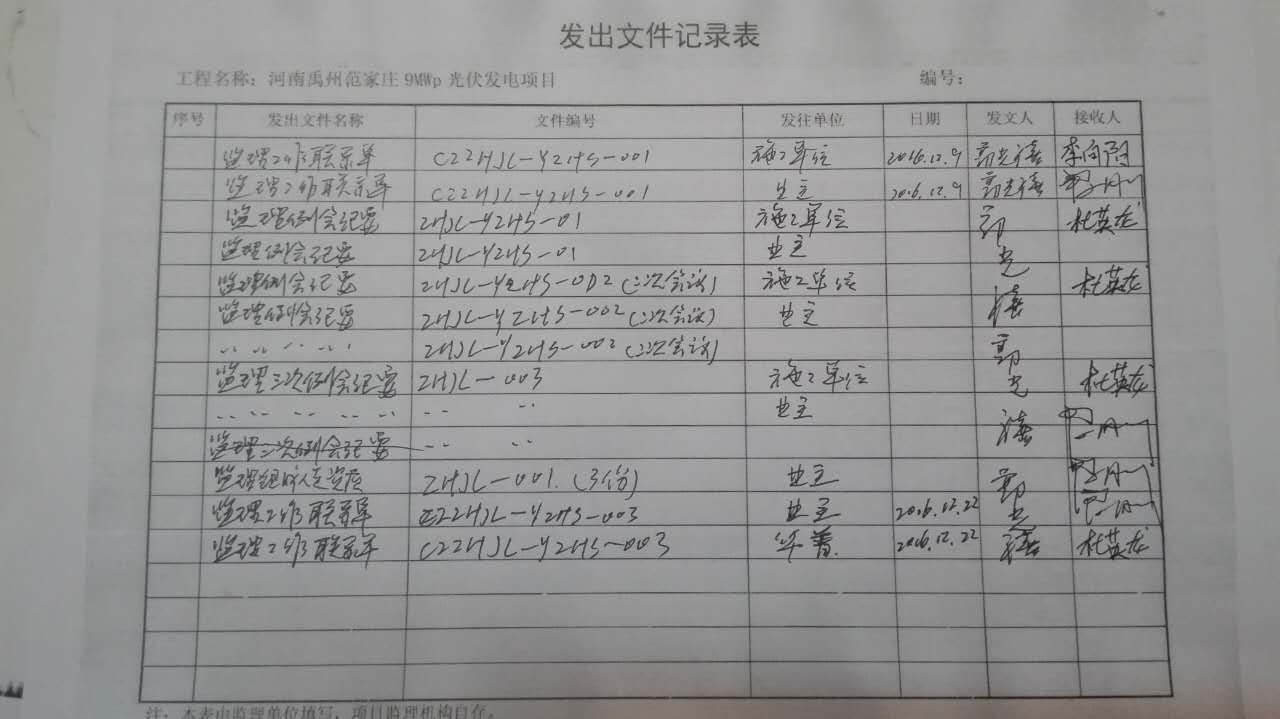 发出文件记录表
工程名称：河南禹州范家庄 9MWp 光伏发电项目 编号：
序号 发出文件名称 文件编号 发往单位 日期 发文人 接收人
监理工作联系单 CZZHJL-YZHS-001 施工单位 2016.12.9
监理工作联系单 CZZHJL-YZHS-001 业主 2016.12.9
监理例会纪要 ZHJL-YZHS-01 施工单位 杜英龙
监理例会纪要 ZHJL-YZHS-01 业主
监理例会纪要 ZHJL-YZHS-002（二次会议） 施工单位 杜英龙
监理例会纪要 ZHJL-YZHS-002（二次会议） 业主
〃 〃 〃 〃 〃 ZHJL-YZHS-002（二次会议）
监理三次例会纪要 ZHJL-003 施工单位 杜英龙
〃 〃 〃 〃 〃 〃 〃 业主
监理三次例会纪要 〃 〃
监理 ZHJL-001.（3份） 业主
监理工作联系单 CZZHJL-YZHS-003 业主 2016.12.22
监理工作联系单 CZZHJL-YZHS-003 华普. 2016.12.22 杜英龙
注：本表由监理单位填写，项目监理机构自存。